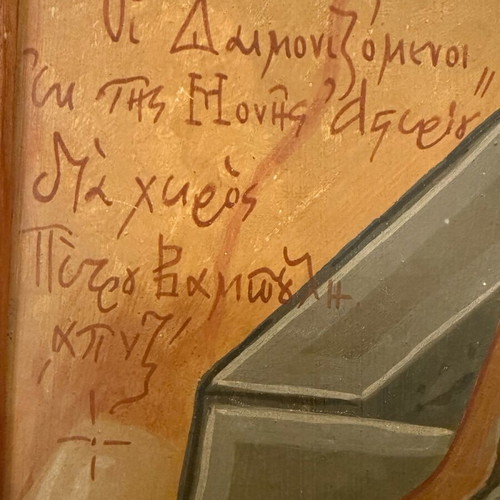 Οἱ Δαιμονιζόμενοι,,
ἐκ τῆς Μονῆς Ἀσκρίου
Διὰ χειρὸς
Πέτρου Βαμπούλη
͵απνζ΄